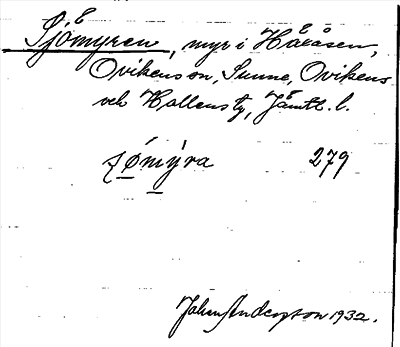 Sjömyren, myr i Håråsen,
Ovikens sn, Sunne, Ovikens
och Hallens tg, Jämtl. l.
ʃömýra 279
Johan Anderson 1932.